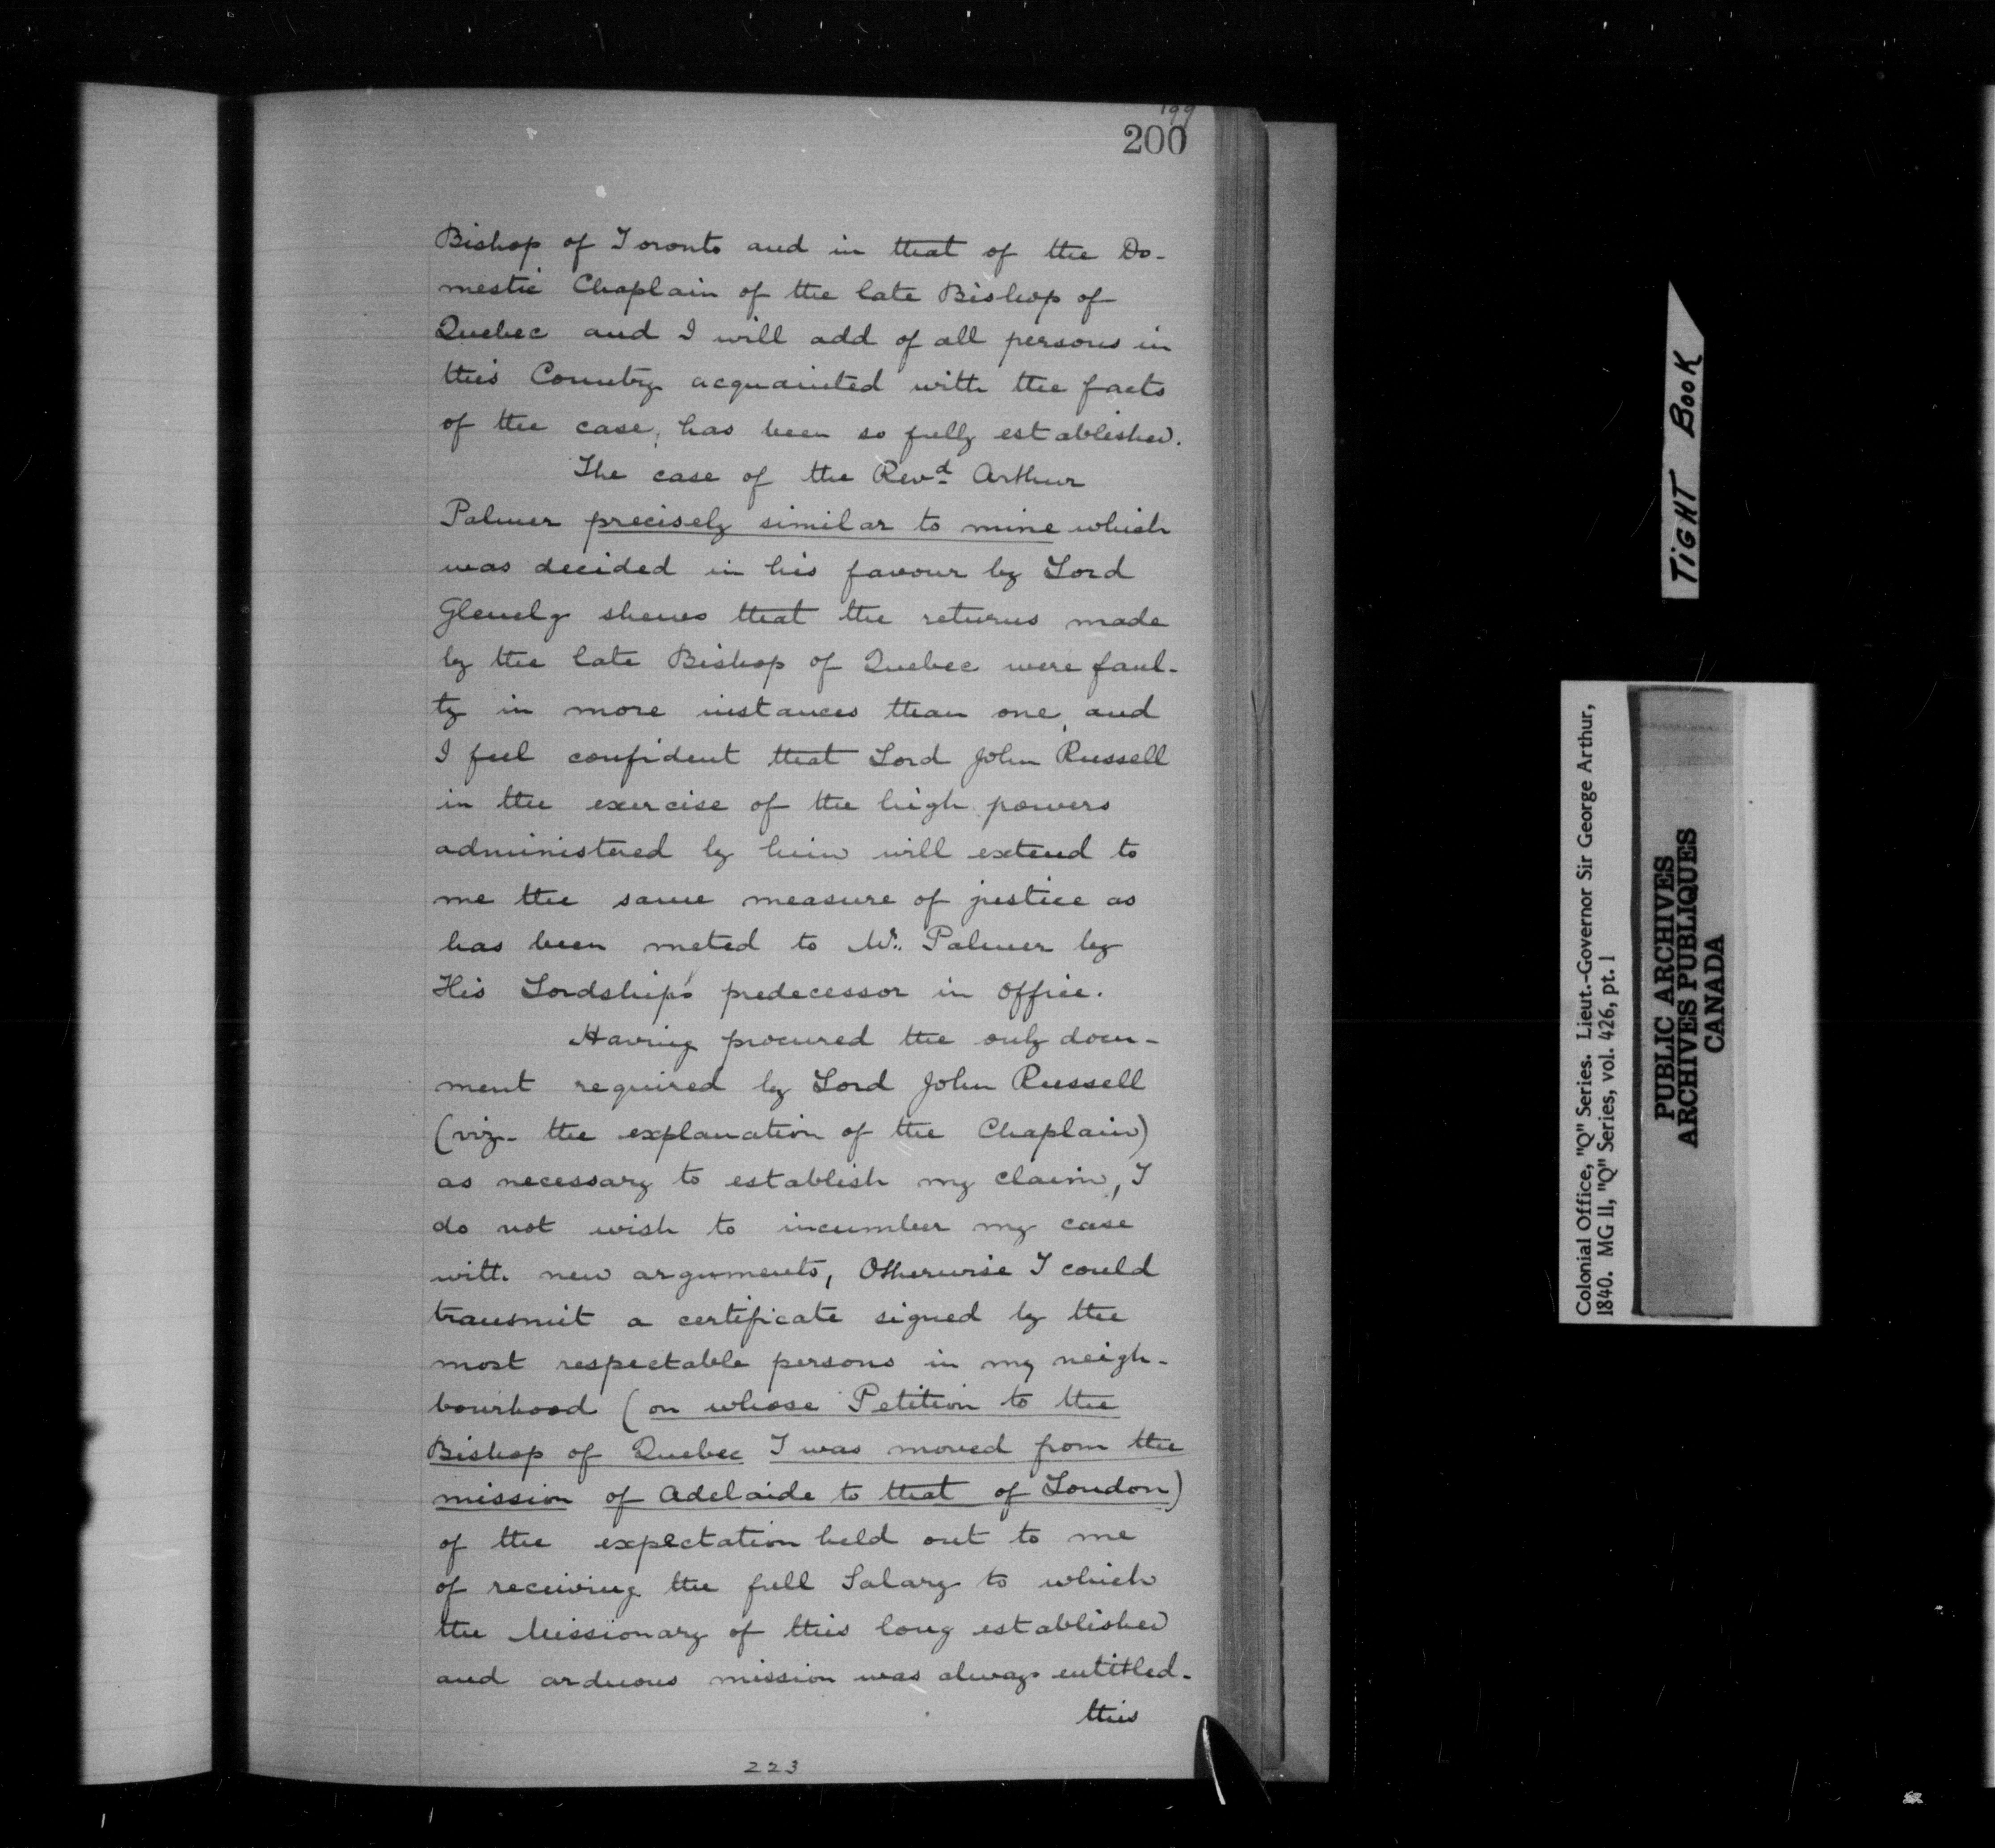 199
200
Bishop of Toronto and in that of the Do-
mestic Chaplain of the late Bishop of
Quebec and I will add of all persons in
this Country acquainted with the facts
of the case, has been so fully established.
The case of the Revd. Arthur
Palmer precisely similar to mine which
was decided in his favour by Lord
Glenelg shews that the returns made
by the late Bishop of Quebec were faul-
ty in more instances than one, and
I feel confident that Lord John Russell
in the exercise of the high powers
administered by him will extend to
me the same measure of justice as
has been meted to Mr. Palmer by
His Lordship's predecessor in office.
Having procured the only docu-
ment required by Lord John Russell
(viz- the explanation of the Chaplain)
as necessary to establish my claim, I
do not wish to incumber my case
with new arguments, Otherwise I could
transmit a certificate signed by the
most respectable persons in my neigh-
bourhood (on whose Petition to the
Bishop of Quebec I was moved from the
mission of Adelaide to that of London)
of the expectation held out to me
of receiving the full Salary to which
the Missionary of this long established
and arduous mission was always entitled.
this
223
TIGHT BOOK
Colonial Office, "Q" Series. Lieut.-Governor Sir George Arthur,
1840. MG 11, "Q" Series, vol. 426, pt. 1
PUBLIC ARCHIVES
ARCHIVES PUBLIQUES
CANADA